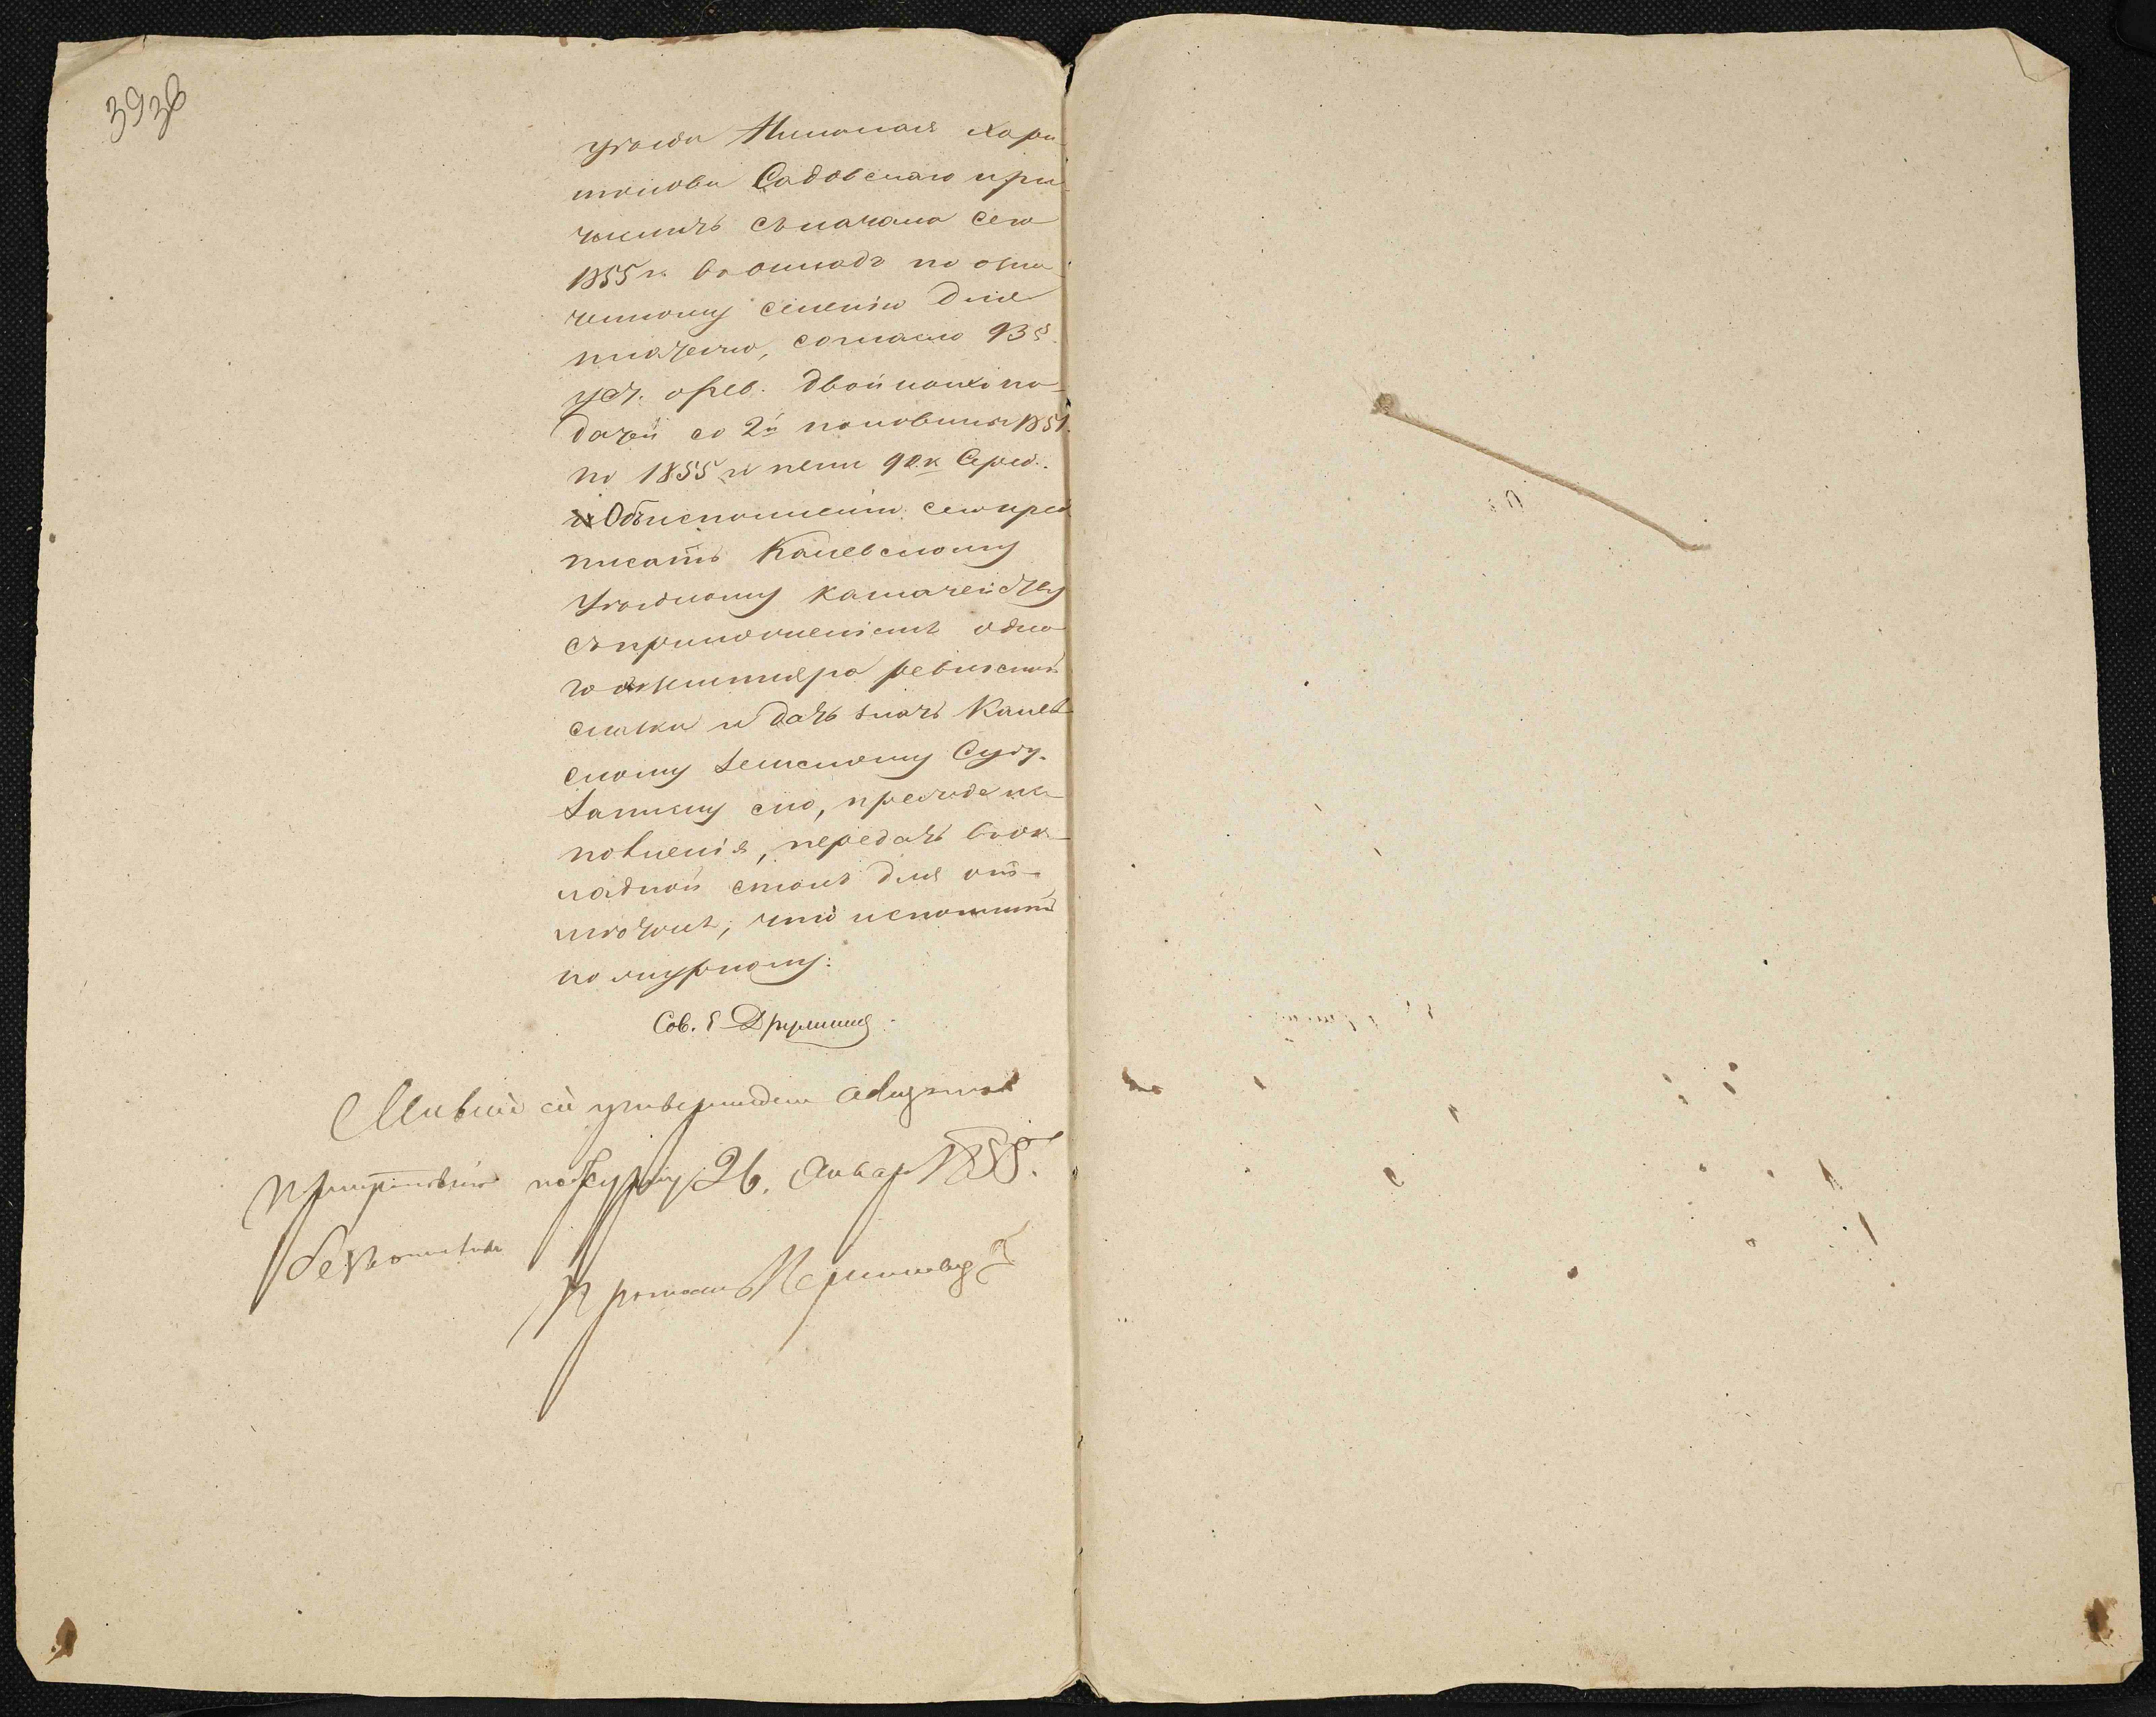 393об
уѣзда Николая Хари-
тонова Садовскаго при-
числить съ начала сего
1855 г. въ окладъ по озна-
ченному селенію для
платежа, согласно 93 §
уст. о рев. двойной по-
дачей со 2й половины 1851.
по 1855 г. и пени 92 к. Сереб.
Объ исполненіи сего пред
писать Каневскому
Уѣздному казначейству
съ приложеніемъ одно
го экземпляра ревизской
сказки и дать знать Канев
скому Земскому Суду.
Записку сію, прежде ис-
полненія, передать въ ок-
ладной столъ для от-
мѣтокъ, что исполнить
по журналу.
Сов.
сей
по 26. Январ 1855.